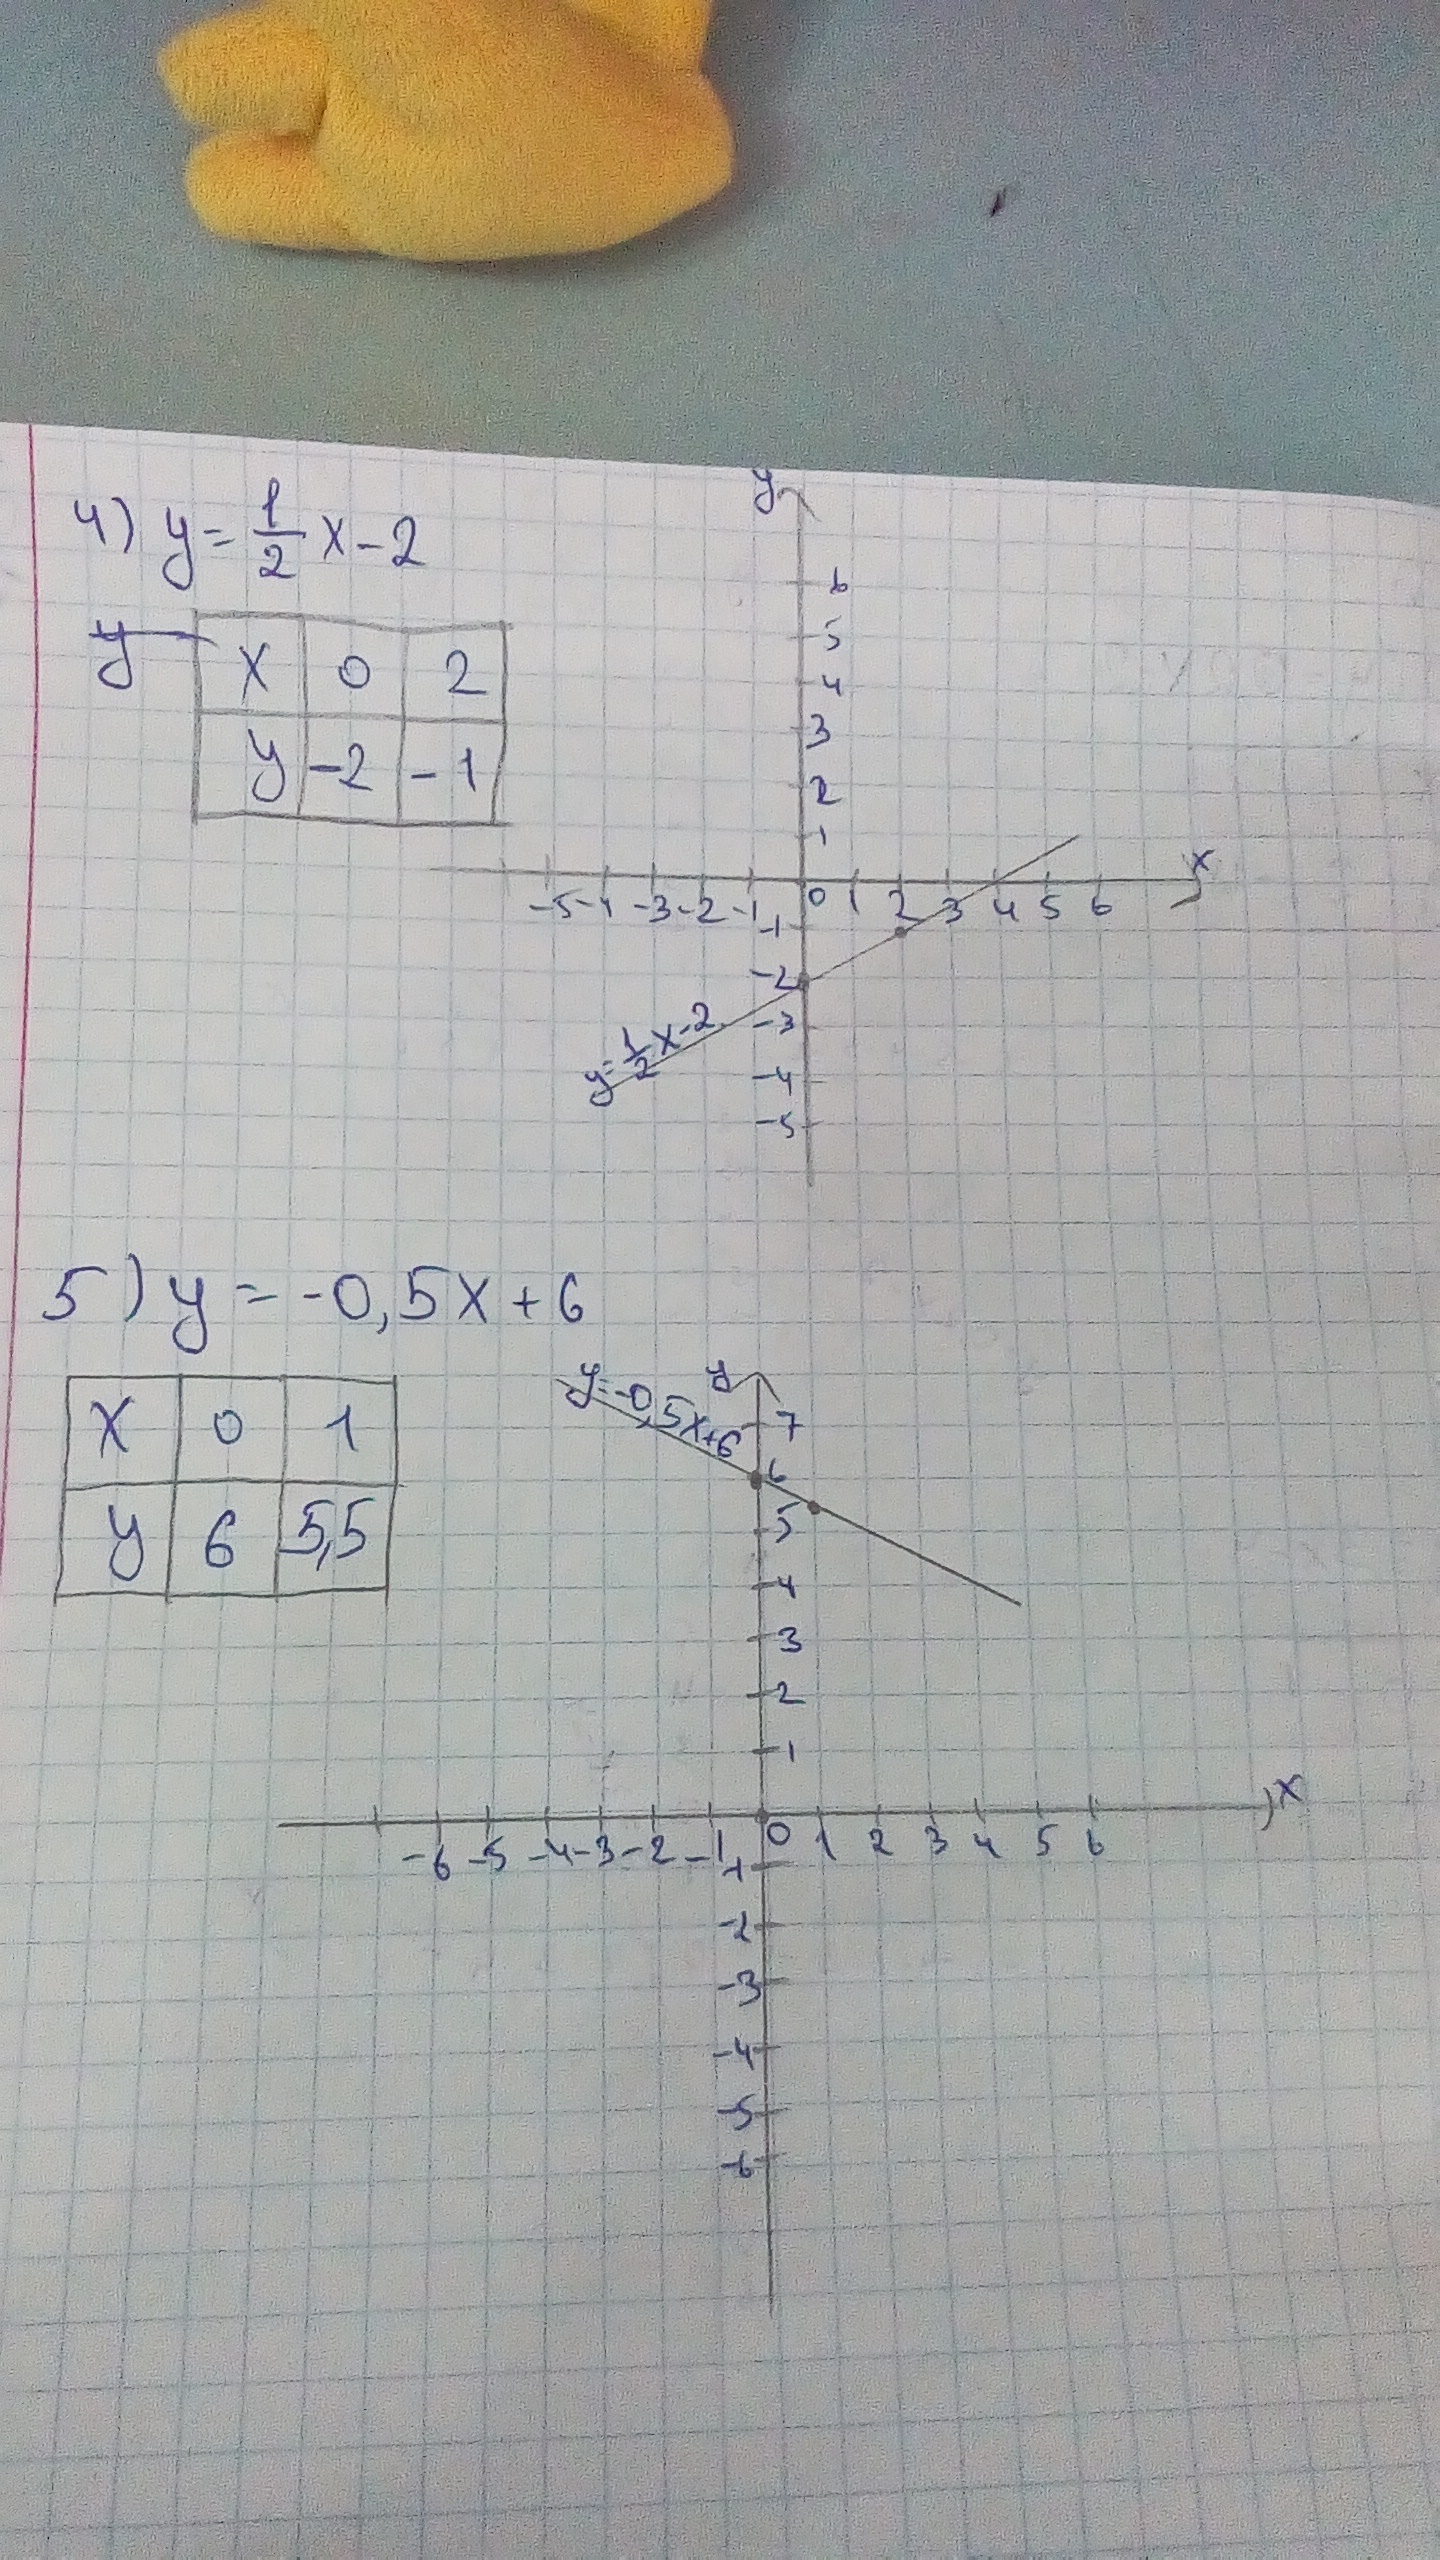 4) y = 1/2 x - 2
y
x 0 2
y -2 -1
y
6
5
4
3
2
1
x
-5 -4 -3 -2 -1 0 1 2 3 4 5 6
-1
-2
-3
-4
-5
y = 1/2 x - 2
5) y = -0,5x + 6
x 0 1
y 6 5,5
y = -0,5x + 6
y
7
6
5
4
3
2
1
x
-6 -5 -4 -3 -2 -1 0 1 2 3 4 5 6
-1
-2
-3
-4
-5
-6